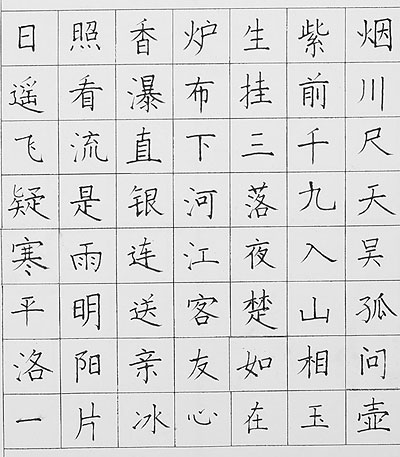 日照香炉生紫烟
遥看瀑布挂前川
飞流直下三千尺
疑是银河落九天
寒雨连江夜入吴
平明送客楚山孤
洛阳亲友如相问
一片冰心在玉壶